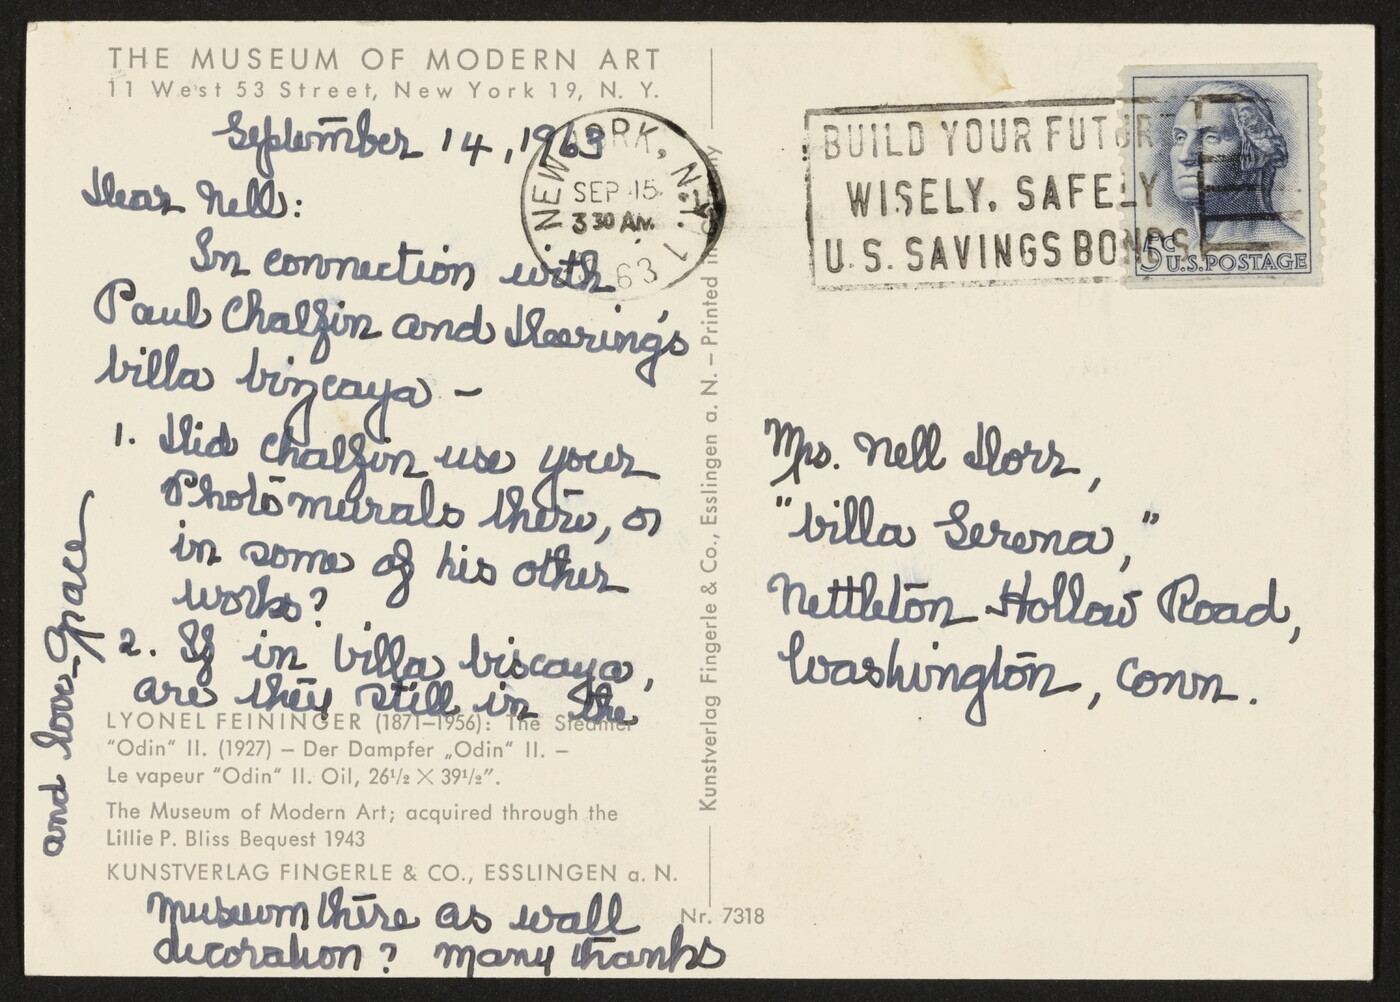 THE MUSEUM OF MODERN ART
11 West 53 Street, New York 19, N. Y.
September 14, 1963
Dear Nell:
In connection with
Paul Chalfin and Deering's
Villa Vizcaya –
1. Did Chalfin use your
Photo murals there, or
in some of his other
works?
2. If in Villa Viscaya,
are they still in the
LYONEL FEININGER (1871–1956): The Steamer
“Odin“ II. (1927) – Der Dampfer „Odin“ II. –
Le vapeur “Odin“ II. Oil, 26½ × 39½”.
The Museum of Modern Art; acquired through the
Lillie P. Bliss Bequest 1943
KUNSTVERLAG FINGERLE & CO., ESSLINGEN a. N.
museum there as wall
decoration? Many thanks
and love – Grace
Nr. 7318
Kunstverlag Fingerle & Co., Esslingen a. N. – Printed in
NEW YORK, N.Y. 1
SEP 15
3 30 AM
63
BUILD YOUR FUTURE
WISELY, SAFELY
U.S. SAVINGS BONDS
5¢ U.S. POSTAGE
Mrs. Nell Dorr,
"Villa Serena,"
Nettleton Hollow Road,
Washington, Conn.